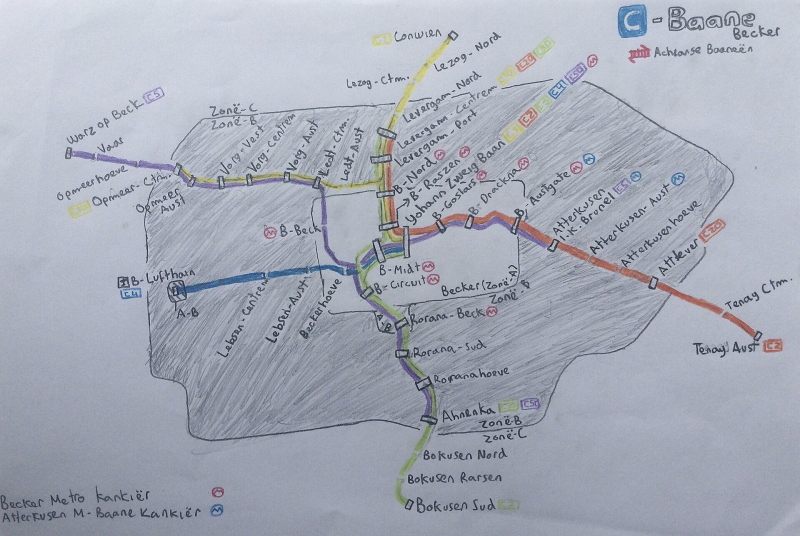 C - Baane
Becker
Achsanse Baaneën
C1 Conwien
Lezog-Nord
Lezog-Ctm.
Levergam-Nord
Levergam-Centrem
Levergam-Port
Warz op Beck C5
Vaas
Opmeerhoeve
Opmeer-Ctm.
Opmeer
Aust
Zonë-C
Zonë-B
Vorg-Vest
Vorg-Centrem
Vorg-Aust
Ledt-Ctm.
Ledt-Aust
B-Nord M
B-Raszen M
Yohann Zwerg Baan
B-Goslars
B-Drackna M
B-Austgate M M
Atterkusen
I.K. Bronel C5 M
Atterkusen-Aust M
Atterkusenhoeve
Attlever C20
Tenay Ctm.
Tenay Aust C2
B-Beck
B-Lufthavn
C4
A-B
Lebsen-Centrem
Lebsen-Aust
Beckerhoeve
B-Midt M
B-Circuit M
Becker (Zonë-A)
Zonë-B
A
B
Rorana-Beck M
Rorana-Sud
Roranahoeve
Ahnenka
Zonë-B
Zonë-C
Bokusen Nord
Bokusen Rarsen
Bokusen Sud
Becker Metro Kankiër M
Atterkusen M-Baane Kankiër M